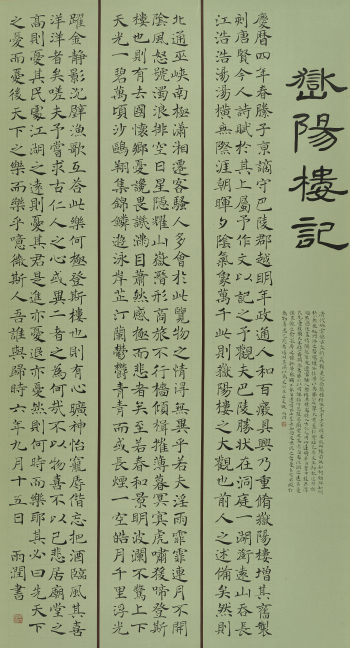 嶽陽樓記
慶曆四年春滕子京謫守巴陵郡越明年政通人和百廢具興乃重脩嶽陽樓增其舊製
刺唐賢今人詩賦於其上屬予作文以記之予觀夫巴陵勝狀在洞庭一湖銜遠山吞長
江浩浩湯湯橫無際涯朝暉夕陰氣象萬千此則嶽陽樓之大觀也前人之述備矣然則
北通巫峽南極瀟湘遷客騷人多會於此覽物之情得無異乎若夫淫雨霏霏連月不開
陰風怒號濁浪排空日星隱耀山嶽潛形商旅不行檣傾楫摧薄暮冥冥虎嘯猿啼登斯
樓也則有去國懷鄉憂讒畏譏滿目蕭然感極而悲者矣至若春和景明波瀾不驚上下
天光一碧萬頃沙鷗翔集錦鱗遊泳岸芷汀蘭鬱鬱青青而或長煙一空皓月千里浮光
躍金靜影沉璧漁歌互答此樂何極登斯樓也則有心曠神怡寵辱偕忘把酒臨風其喜
洋洋者矣嗟夫予嘗求古仁人之心或異二者之為何哉不以物喜不以己悲居廟堂之
高則憂其民處江湖之遠則憂其君是進亦憂退亦憂然則何時而樂耶其必曰先天下
之憂而憂後天下之樂而樂乎噫微斯人吾誰與歸時六年九月十五日 雨潤書